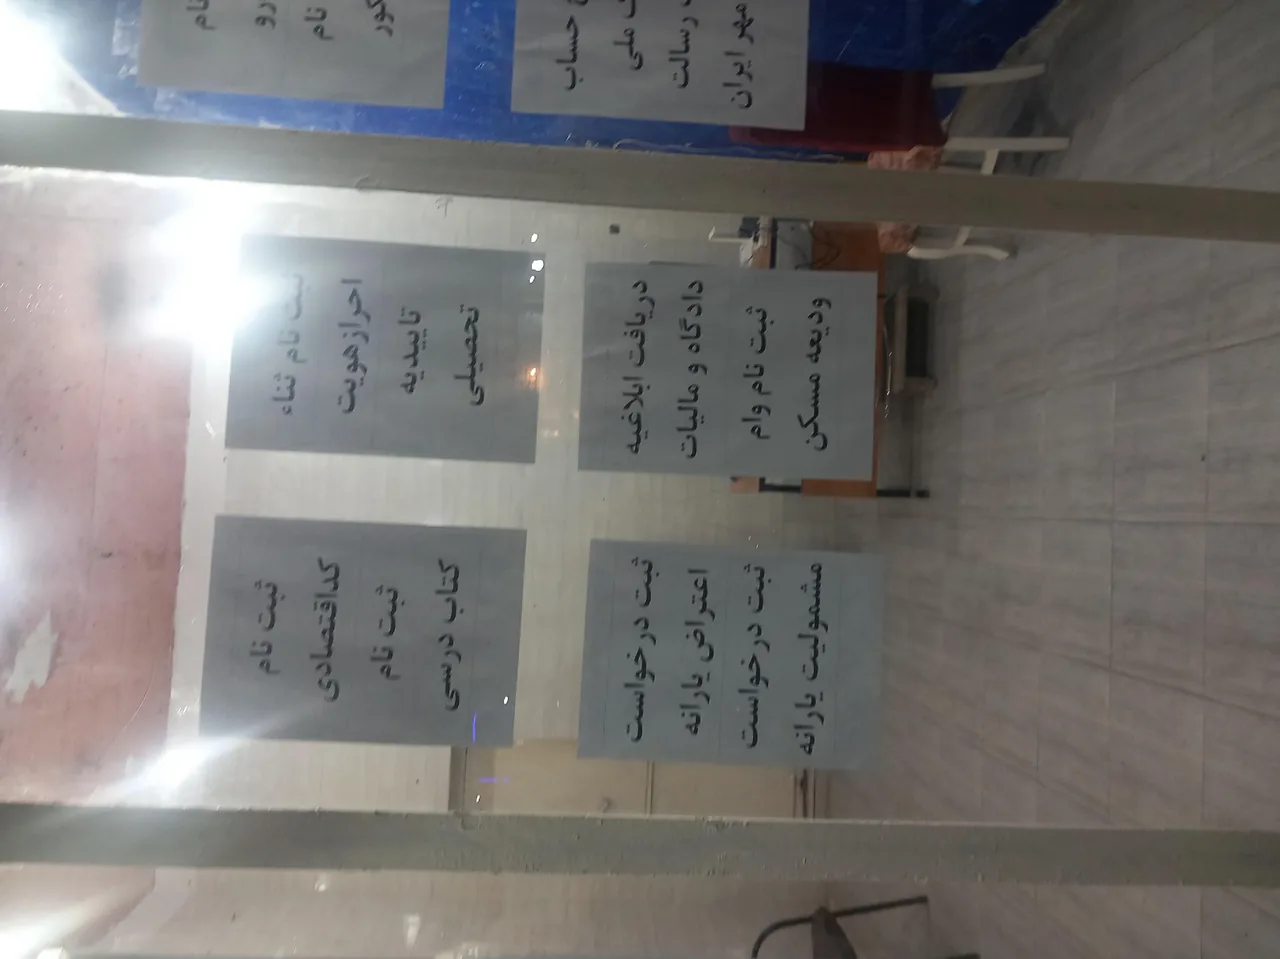 نام
رو
نام
کور
ثبت نام ثناء
احرازهویت
تاییدیه
تحصیلی
ثبت نام
کداقتصادی
ثبت نام
کتاب درسی
حساب
ملی
رسالت
مهر ایران
دریافت ابلاغیه
دادگاه و مالیات
ثبت نام وام
ودیعه مسکن
ثبت درخواست
اعتراض یارانه
ثبت درخواست
مشمولیت یارانه